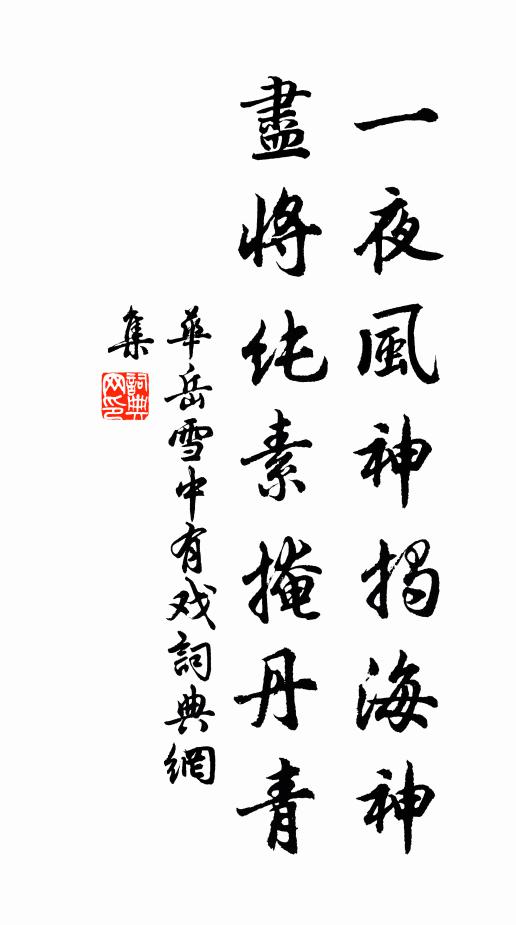 一夜風神揭海神
盡將純素掩丹青
華岳雪中有戏詞典網
集
詞典
网印